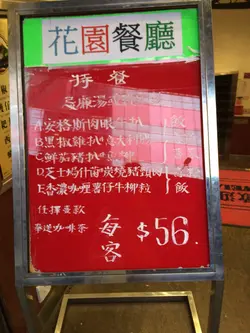 花園餐廳
特餐
忌廉湯
A安格斯肉眼牛扒
B黑椒雞扒意大利
C鮮茄豬扒
飯
D.芝士焗什菌炭燒豬頸肉
E香濃咖喱薯仔牛柳粒
飯
任擇壹款
奉送咖啡茶
每客 $56.